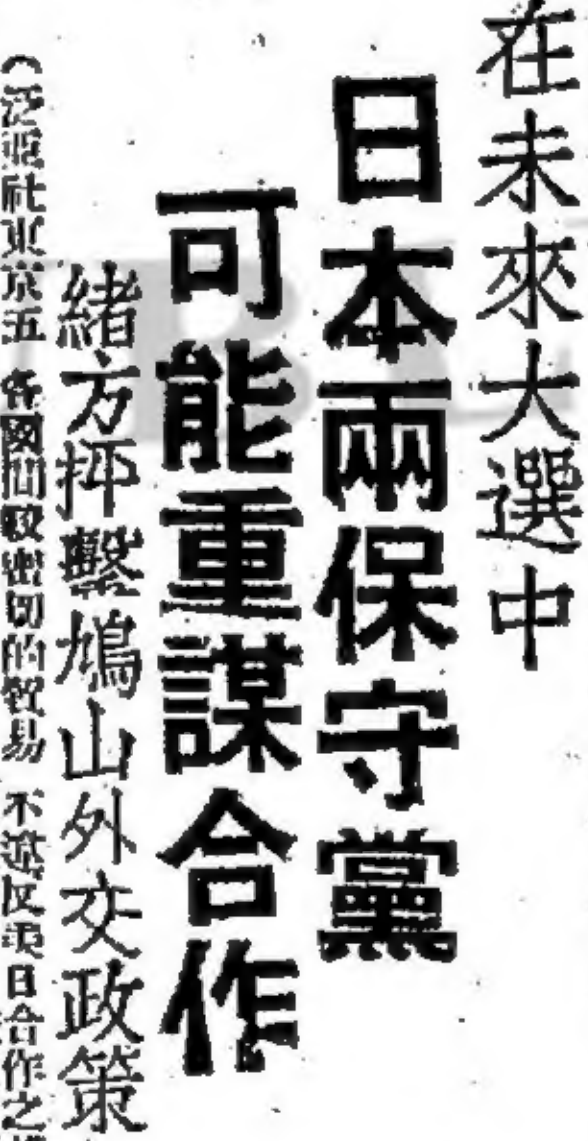 在未來大選中
日本兩保守黨
可能重謀合作
緒方抨繫鳩山外交政策
（泛亞社東京五 各國間較密切的貿易 不違反美日合作之